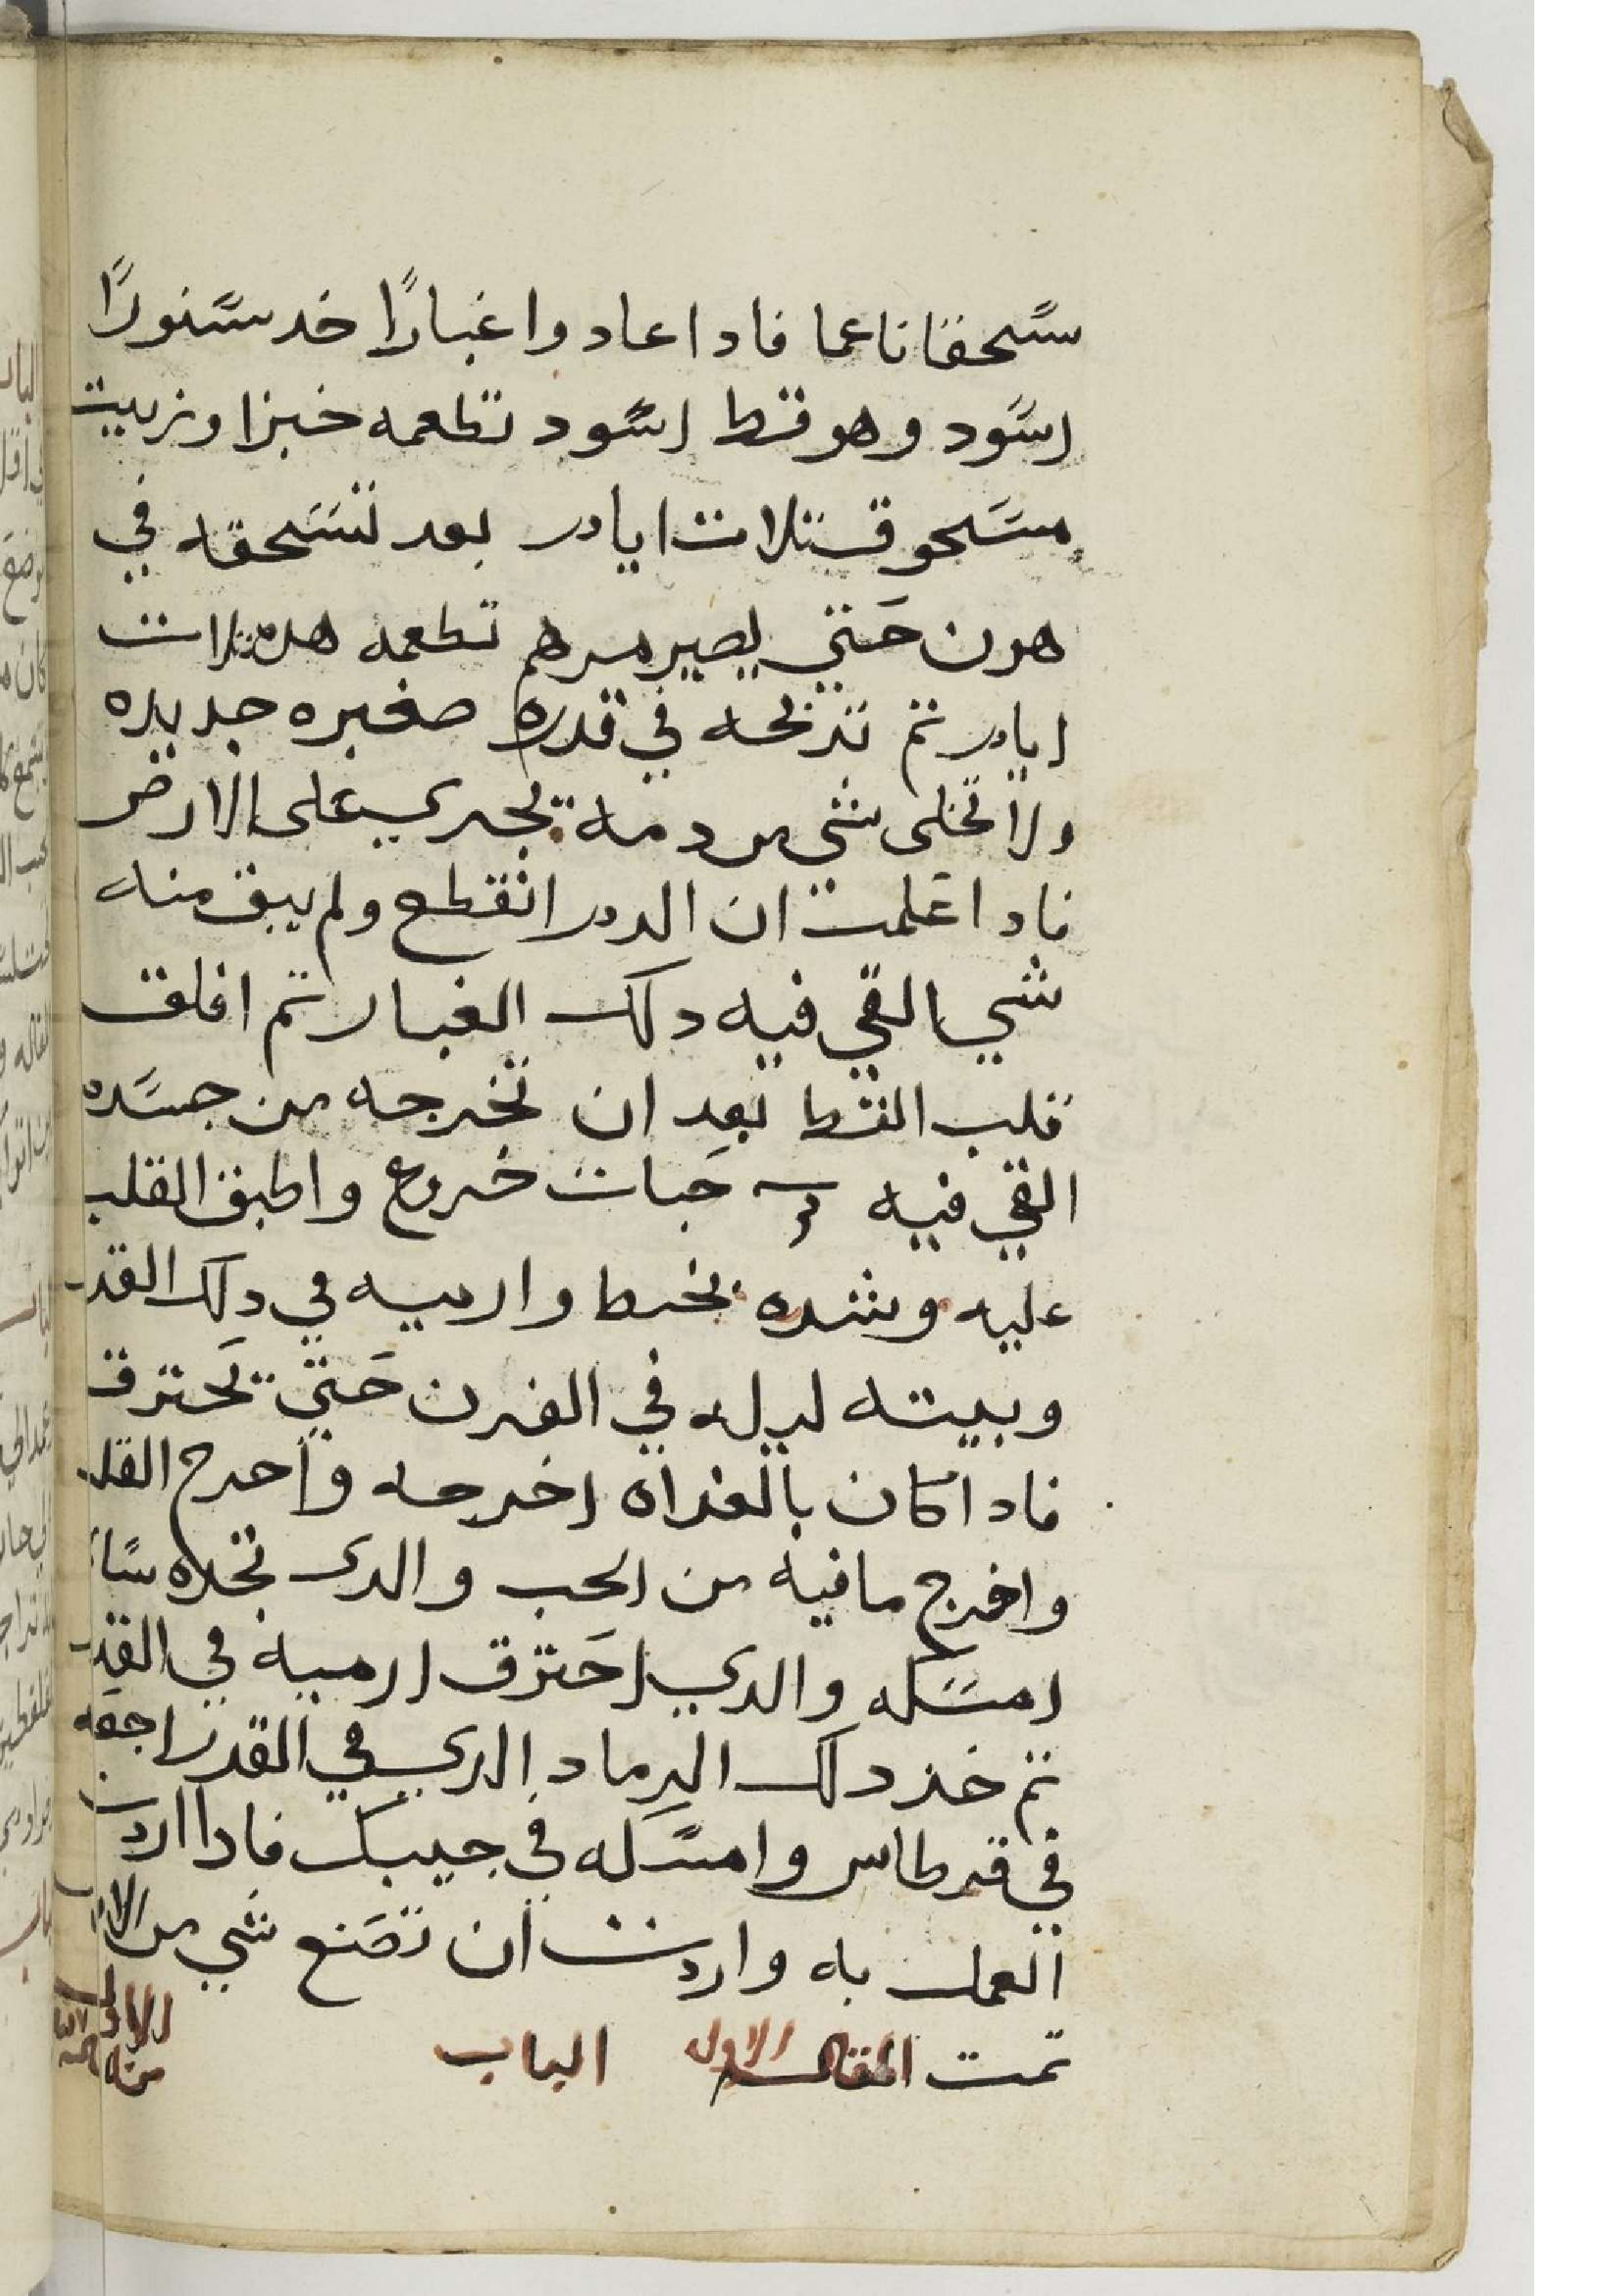 سحقا ناعما فادا عادوا غبارًا خد سنورًا
اسود وهو قط اسود تطعمه خبزا وزبيت
مسحوق تلات ايام بعد تسحقه في
هون حتي يصير مرهم تطعمه هدہ تلات
ايام تم تدبحه في قدره صغيره جديده
ولا تخلى شي من دمه يجري على الارض
فادا علمت ان الدم انقطع ولم يبق منه
شي القي فيه دلك الغبار تم افلق
قلب القط بعد ان تخرجه من جسده
القي فيه حبات خروع واطبق القلب
عليه وشده بخيط وارميه في دلك القدر
وبيته ليله في الفرن حتي يحترق
فادا كان بالغداه اخرجه واخرج القلب
واخرج ما فيه من الحب والدى تجده سا
امسكه والدي احترق ارميه في القدر
تم خد دلك الرماد الدي في القدر اجعه
في قرطاس وامسكه في جيبك فادا اردت
العمل به واردت ان تصنع شي من
تمت المقاله الاوله الباب الاول
من